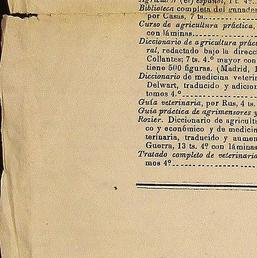 Agricultor (el) español, 1 t. 4.º
Biblioteca completa del ganade
por Casas, 7 ts.
Curso de agricultura práctica,
con láminas
Diccionario de agricultura práct
ral, redactado bajo la direcc
Collantes; 7 ts. 4.º mayor con
tiene 500 figuras. (Madrid, 1
Diccionario de medicina veterin
Delwart, traducido y adicion
tomos 4.º
Guía veterinaria, por Rus, 4 ts.
Guía práctica de agrimensores y
Rozier. Diccionario de agricultu
co y económico y de medicin
terinaria, traducido y aumen
Guerra, 13 ts. 4.º con láminas
Tratado completo de veterinaria
mos 4.º